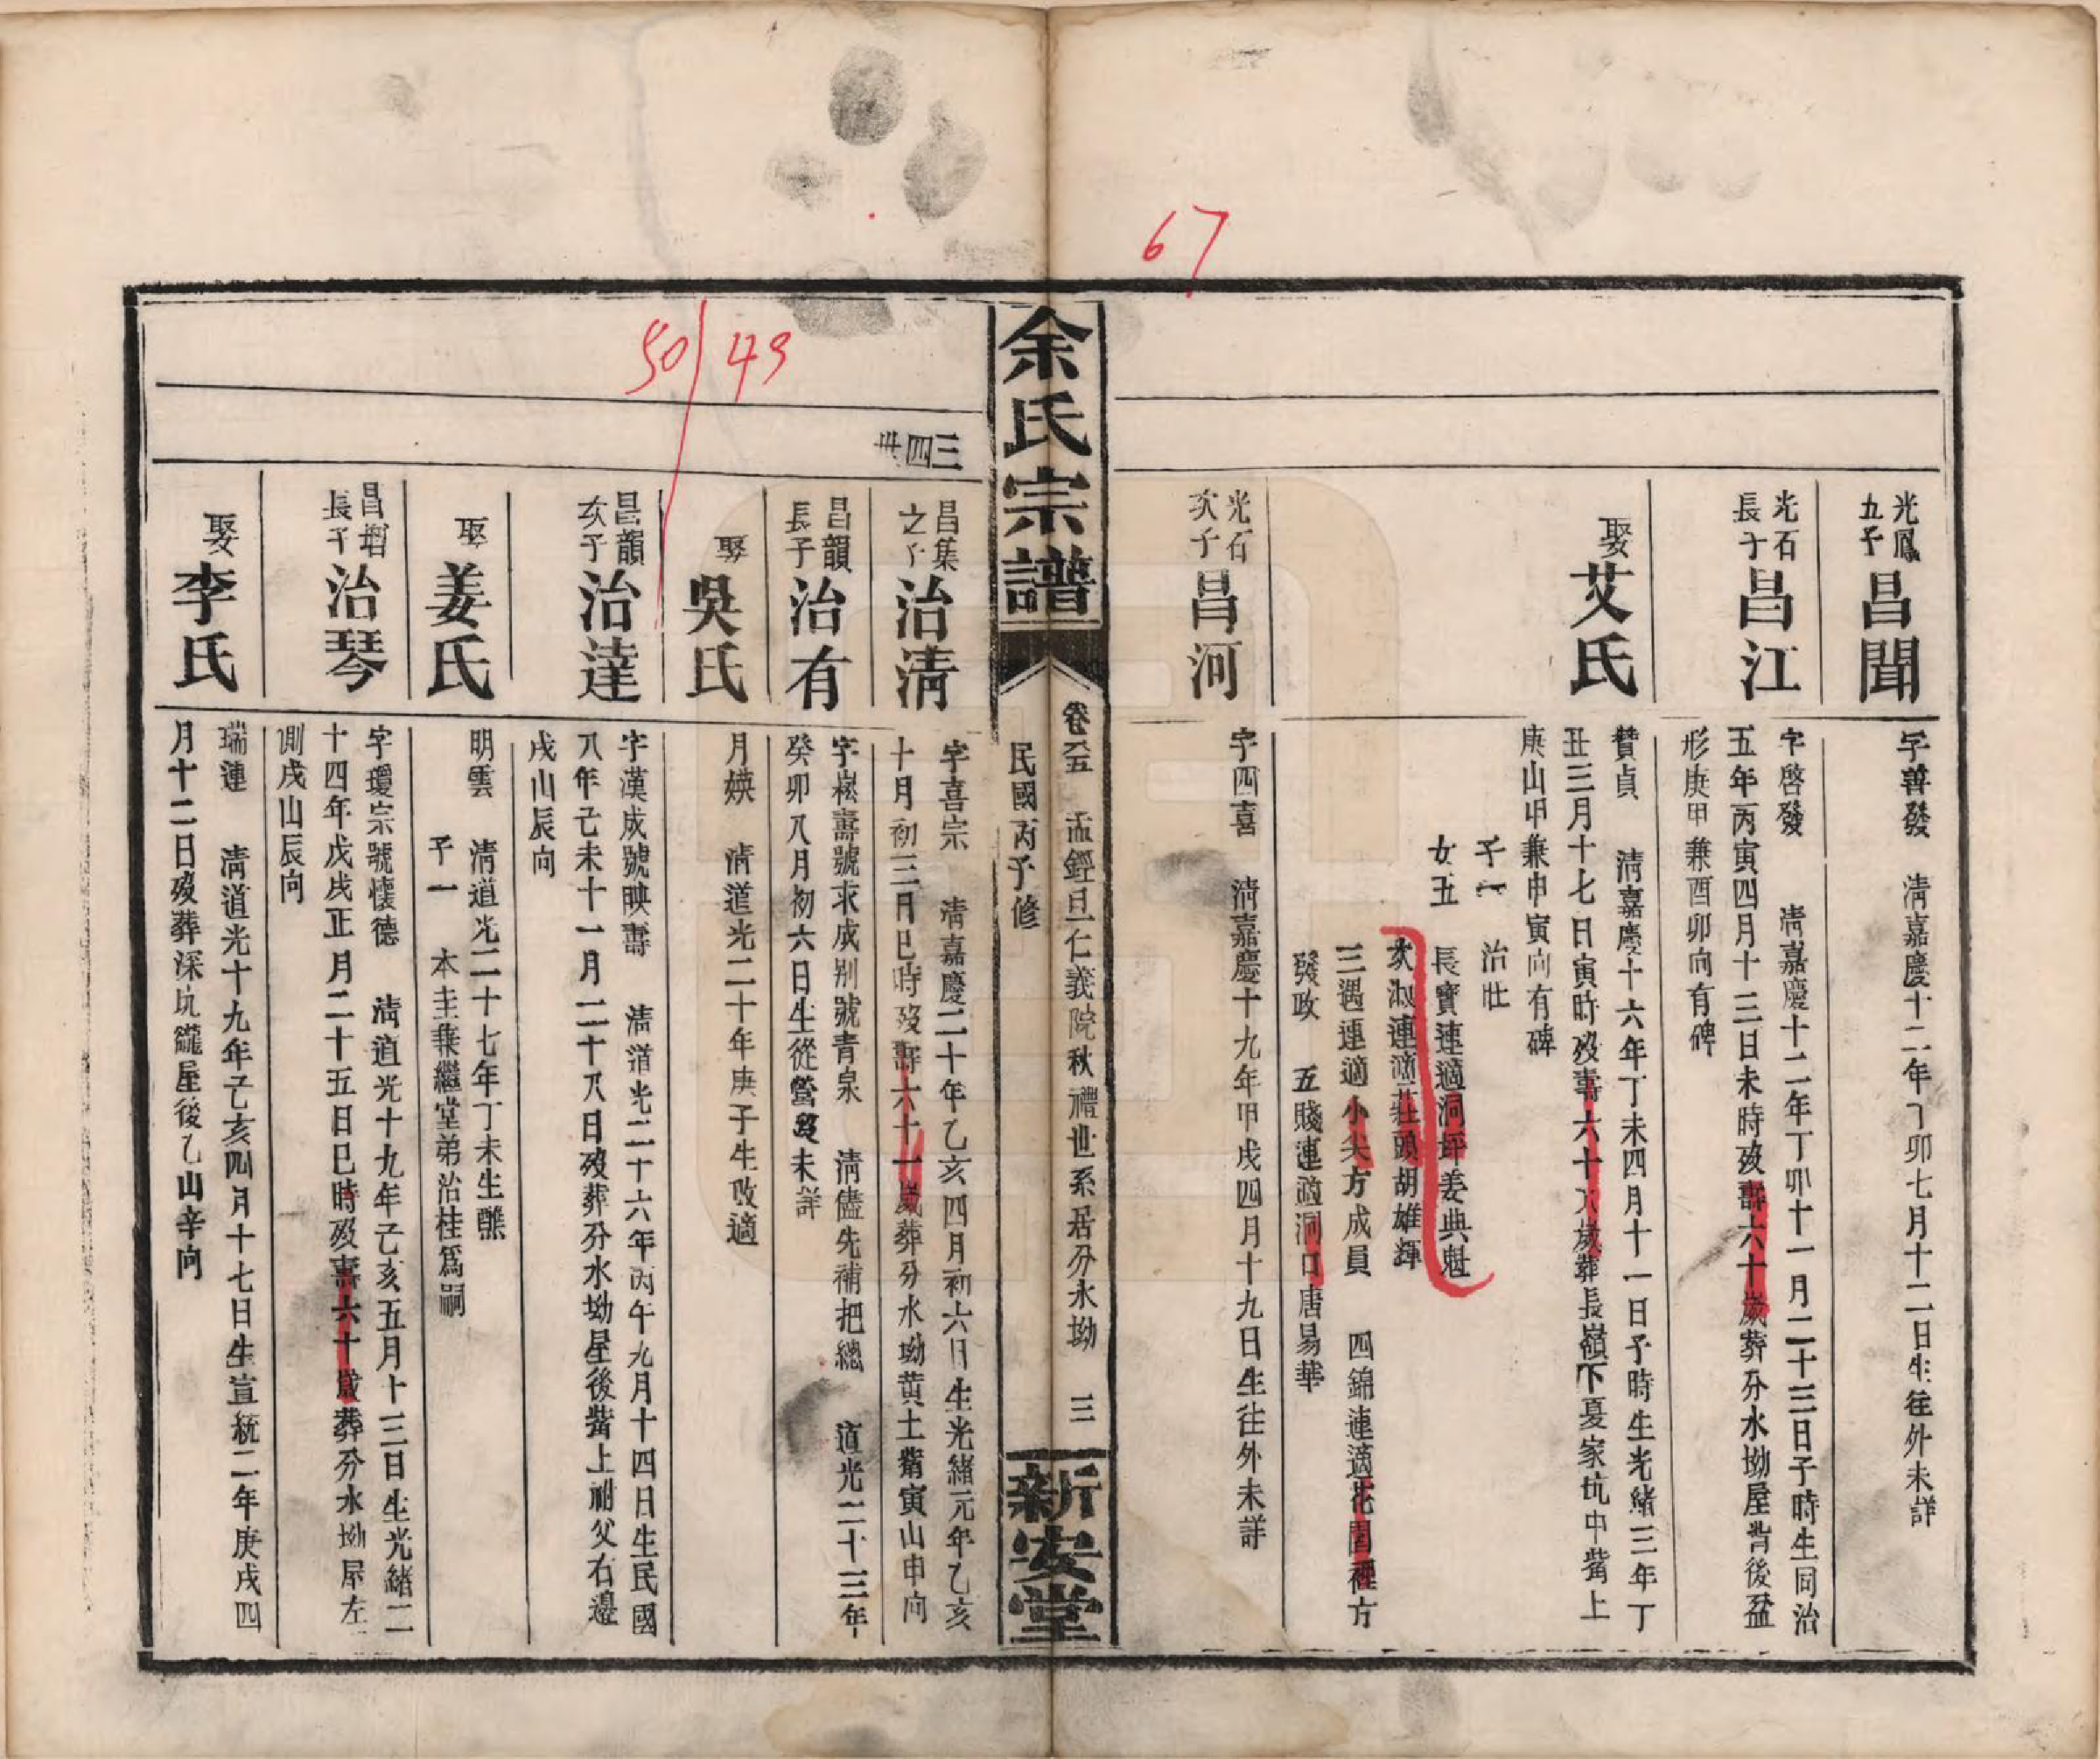 67
光鳳
九子
昌聞
字善發　清嘉慶十二年丁卯七月十二日生往外未詳
光石
長子
昌江
字啓發　清嘉慶十二年丁卯十一月二十三日子時生同治
五年丙寅四月十三日未時歿壽六十歲葬分水坳屋背後盆
形庚甲兼酉卯向有碑
娶
艾氏
贊貞　清嘉慶十六年丁未四月十一日子時生光緒三年丁
丑三月十七日寅時歿壽六十八歲葬長嶺下夏家坑中嘴上
庚山甲兼申寅向有碑
子一　治壯
女五　長寶連適洞坪姜典魁
次淑連適莊頭胡雄輝
三遇連適小尖方成員　四錦連適花園裡方
發政　五賤連適洞口唐易華
光石
次子
昌河
字四喜　清嘉慶十九年甲戌四月十九日生往外未詳
余氏宗譜
卷至五　孟鏗旦仁義院秋禮世系居分水坳　三
民國丙子修
新安堂
50/49
三四世
昌集
之子
治清
字喜宗　清嘉慶二十年乙亥四月初六日生光緒元年乙亥
十月初三日巳時歿壽六十一歲葬分水坳黄土嘴寅山申向
昌韻
長子
治有
字崧壽號求成别號青泉　清儘先補把總　道光二十三年
癸卯八月初六日生從營歿未詳
娶
吳氏
月媖　清道光二十年庚子生改適
昌韻
次子
治達
字漢成號映壽　清道光二十六年丙午九月十四日生民國
八年己未十一月二十八日歿葬分水坳屋後嘴上祔父右邊
戌山辰向
娶
姜氏
明雲　清道光二十七年丁未生醮
子一　本圭葉繼堂弟治桂爲嗣
昌增
長子
治琴
字瓊宗號懷德　清道光十九年己亥五月十三日生光緒二
十四年戊戌正月二十五日巳時歿壽六十歲葬分水坳屋左
側戌山辰向
娶
李氏
瑞連　清道光十九年己亥四月十七日生宣統二年庚戌四
月十二日歿葬深坑鑨屋後乙山辛向